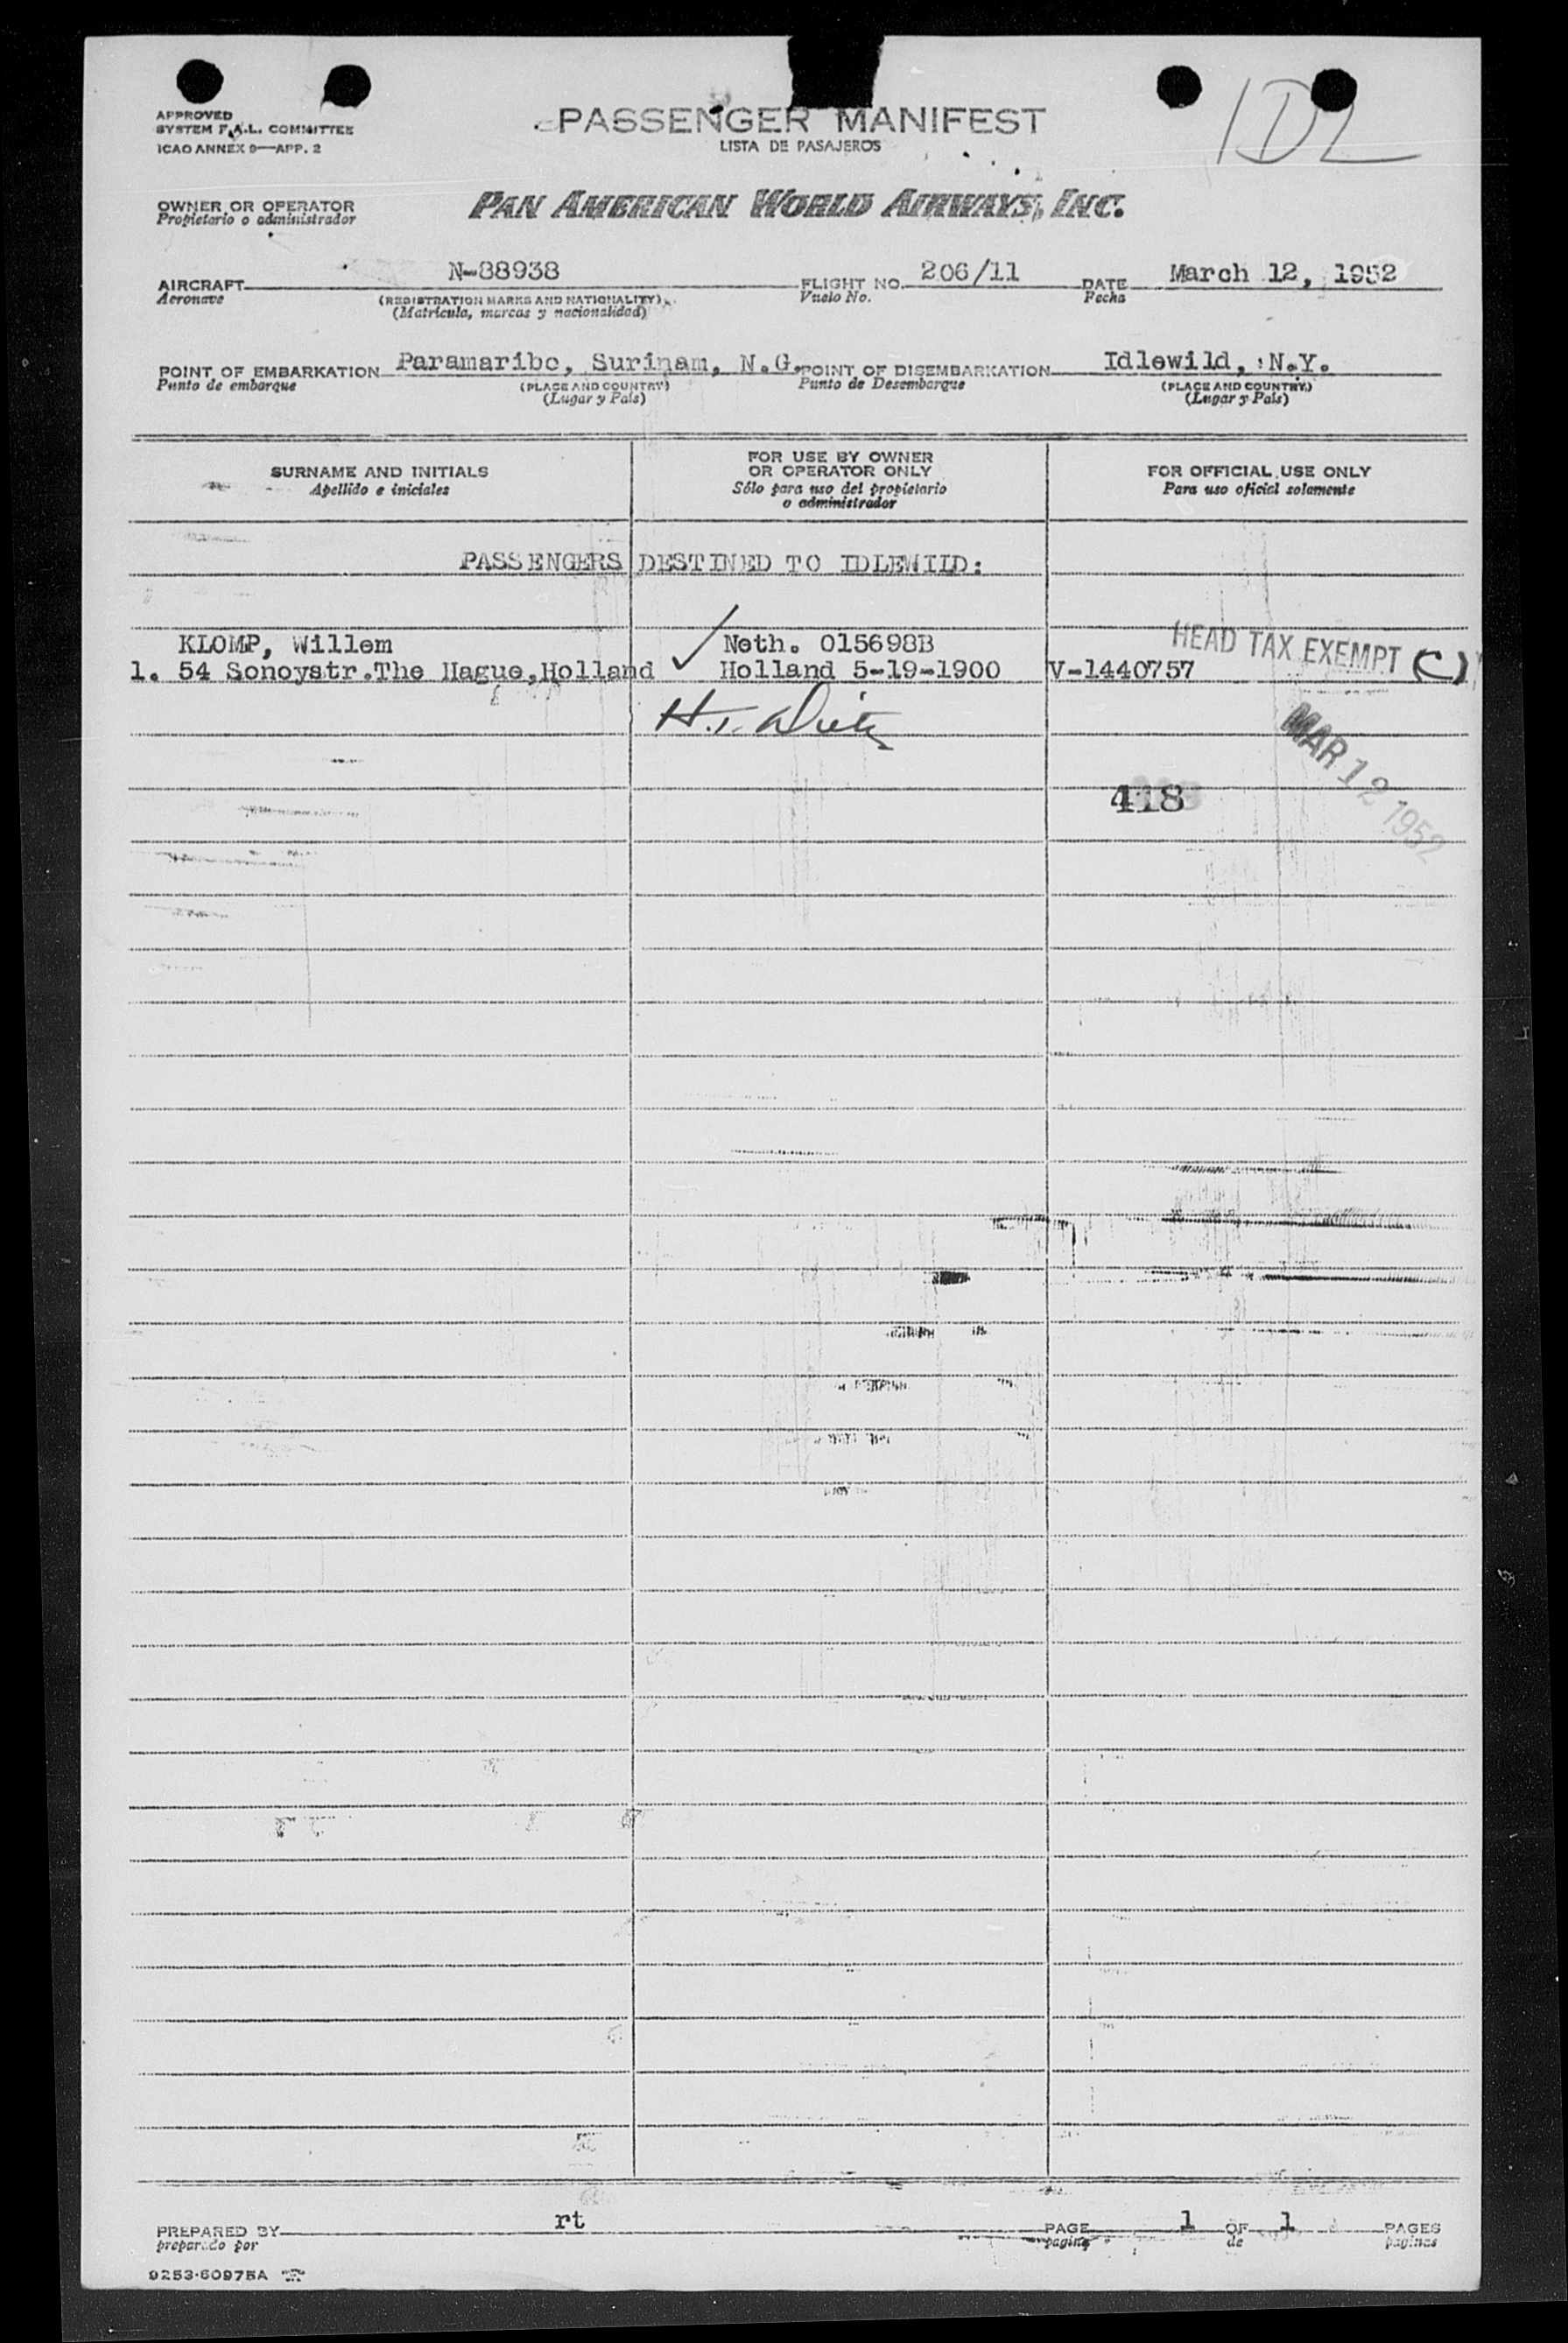 IDL
APPROVED
SYSTEM F.A.L. COMMITTEE
ICAO ANNEX 9—APP. 2
PASSENGER MANIFEST
LISTA DE PASAJEROS
OWNER OR OPERATOR
Propietario o administrador
PAN AMERICAN WORLD AIRWAYS, INC.
AIRCRAFT N-88938 FLIGHT NO. 206/11 DATE March 12, 1952
Aeronave (REGISTRATION MARKS AND NATIONALITY) Vuelo No. Fecha
(Matrícula, marcas y nacionalidad)
POINT OF EMBARKATION Paramaribo, Surinam, N.G. POINT OF DISEMBARKATION Idlewild, N.Y.
Punto de embarque (PLACE AND COUNTRY) Punto de Desembarque (PLACE AND COUNTRY)
(Lugar y País) (Lugar y País)
SURNAME AND INITIALS
Apellido e iniciales
FOR USE BY OWNER
OR OPERATOR ONLY
Sólo para uso del propietario
o administrador
FOR OFFICIAL USE ONLY
Para uso oficial solamente
PASSENGERS DESTINED TO IDLEWILD:
KLOMP, Willem Neth. 015698B HEAD TAX EXEMPT (C)
1. 54 Sonoystr.The Hague,Holland Holland 5-19-1900 V-1440757
MAR 12 1952
418
PREPARED BY rt PAGE 1 OF 1 PAGES
preparado por pagina de paginas
9253-60975A